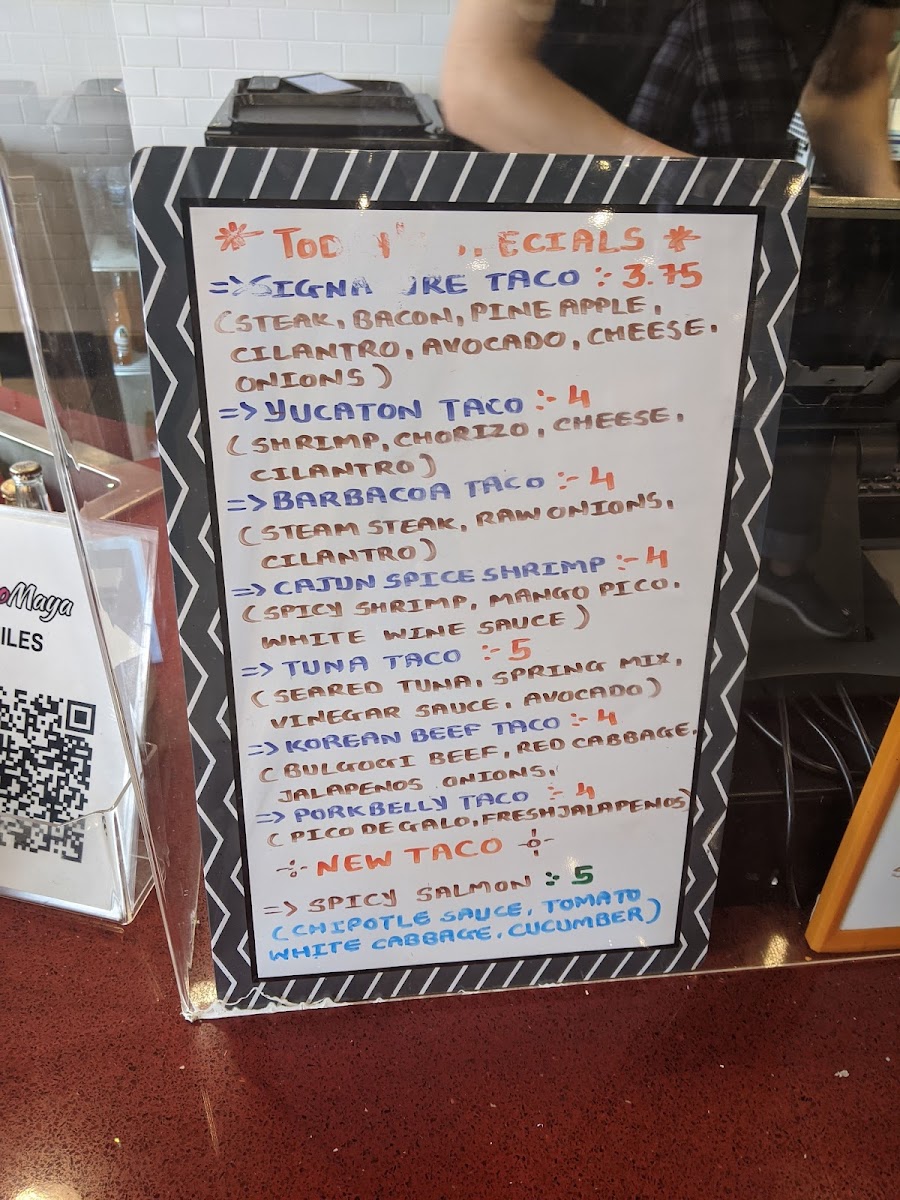 Maya
ILES
TOD ECIALS
=> SIGNATURE TACO :- 3.75
(STEAK, BACON, PINE APPLE,
CILANTRO, AVOCADO, CHEESE,
ONIONS)
=> YUCATON TACO :- 4
(SHRIMP, CHORIZO, CHEESE,
CILANTRO)
=> BARBACOA TACO :- 4
(STEAM STEAK, RAW ONIONS,
CILANTRO)
=> CAJUN SPICE SHRIMP :- 4
(SPICY SHRIMP, MANGO PICO,
WHITE WINE SAUCE)
=> TUNA TACO :- 5
(SEARED TUNA, SPRING MIX,
VINEGAR SAUCE, AVOCADO)
=> KOREAN BEEF TACO :- 4
(BULGOGI BEEF, RED CABBAGE,
JALAPENOS, ONIONS,
=> PORKBELLY TACO :- 4
(PICO DE GALO, FRESH JALAPENOS)
NEW TACO
=> SPICY SALMON :- 5
(CHIPOTLE SAUCE, TOMATO
WHITE CABBAGE, CUCUMBER)